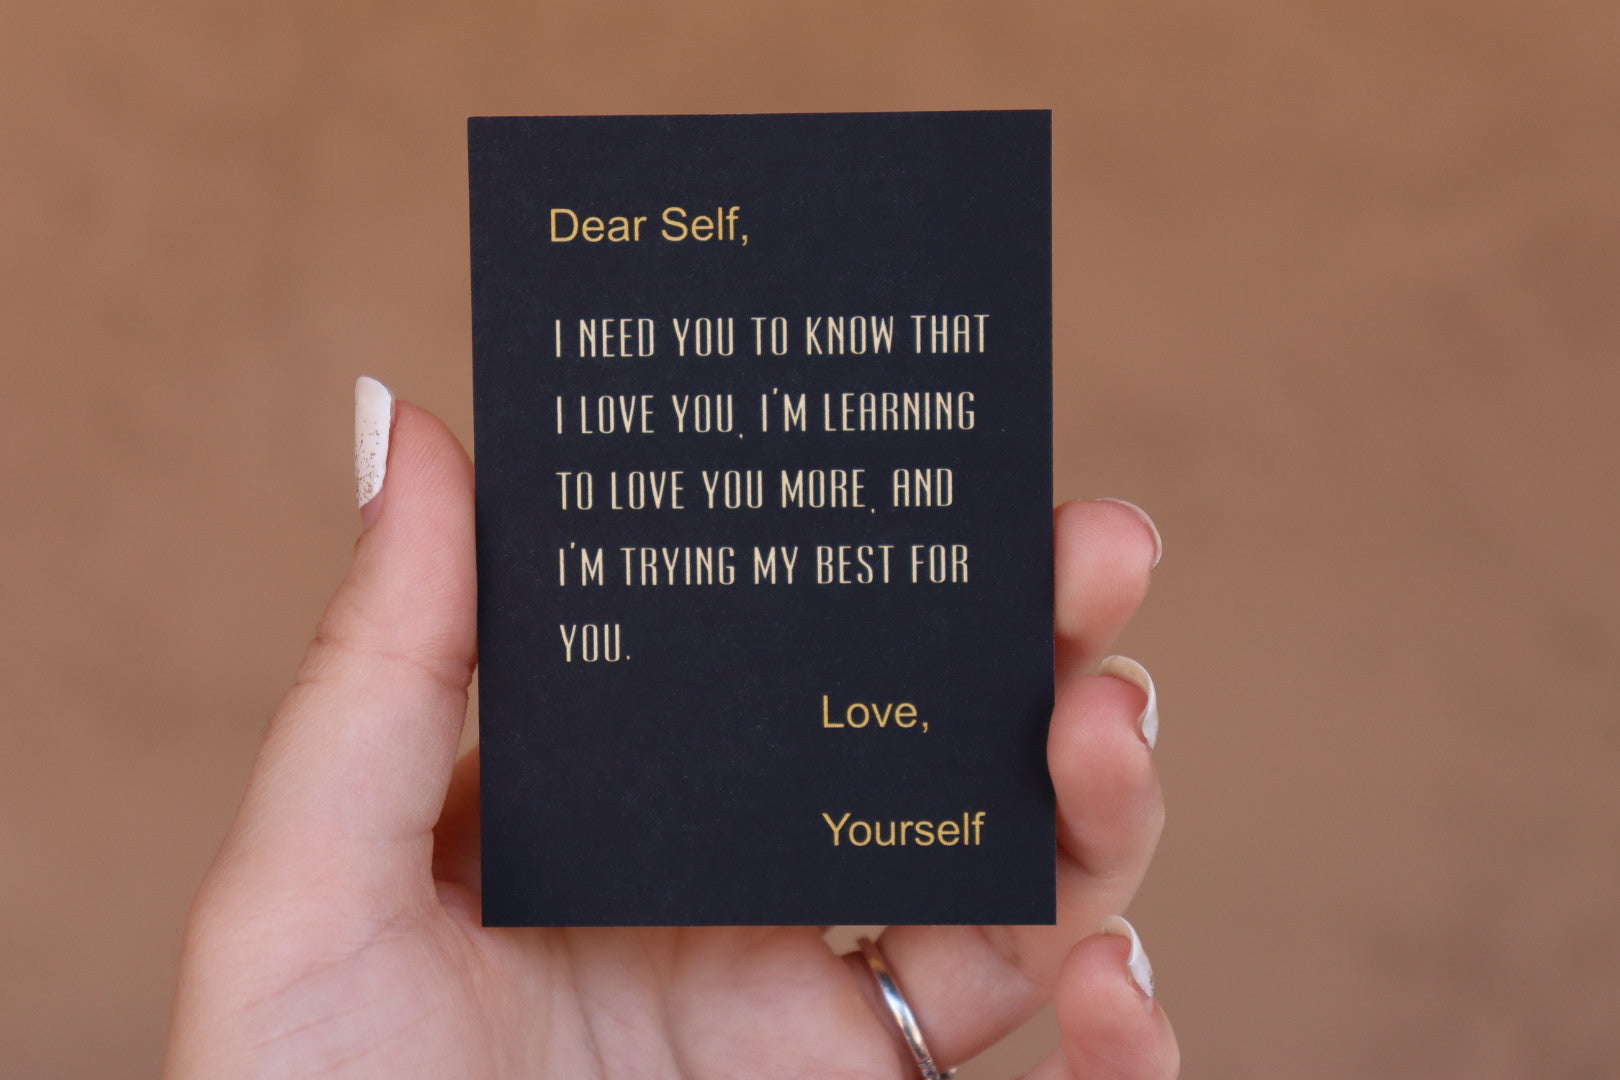 Dear Self,
I NEED YOU TO KNOW THAT
I LOVE YOU, I'M LEARNING
TO LOVE YOU MORE, AND
I'M TRYING MY BEST FOR
YOU.
Love,
Yourself